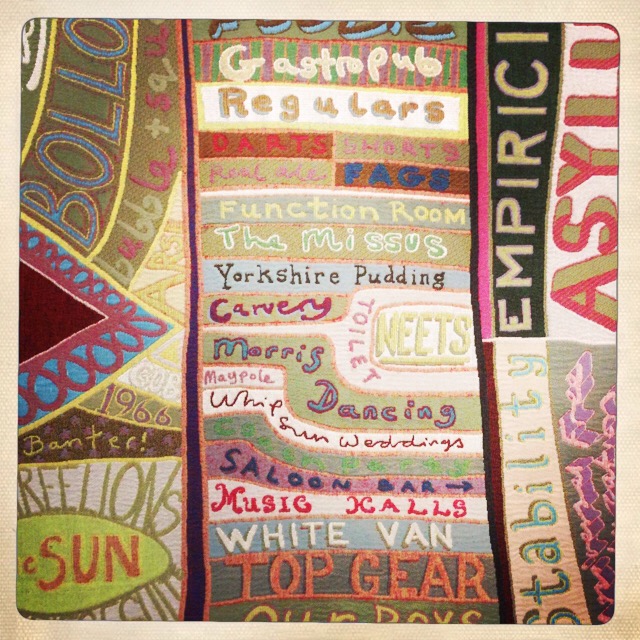 Gastropub
Regulars
DARTS SHORTS
Real ale FAGS
Function Room
The Missus
Yorkshire Pudding
Carvery
TOILET
NEETS
Morris
Maypole
Dancing
Whip
Sun Weddings
SALOON BAR →
MUSIC HALLS
WHITE VAN
TOP GEAR
OUR BOYS
BOLLO
1966
Banter!
SUN
EMPIRICI
ASYLU
Stability